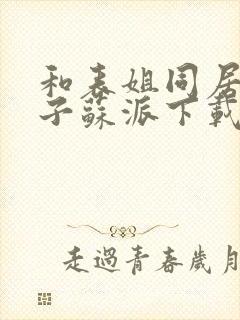 和表姐同居
子蘇派下載
走過青春歲月